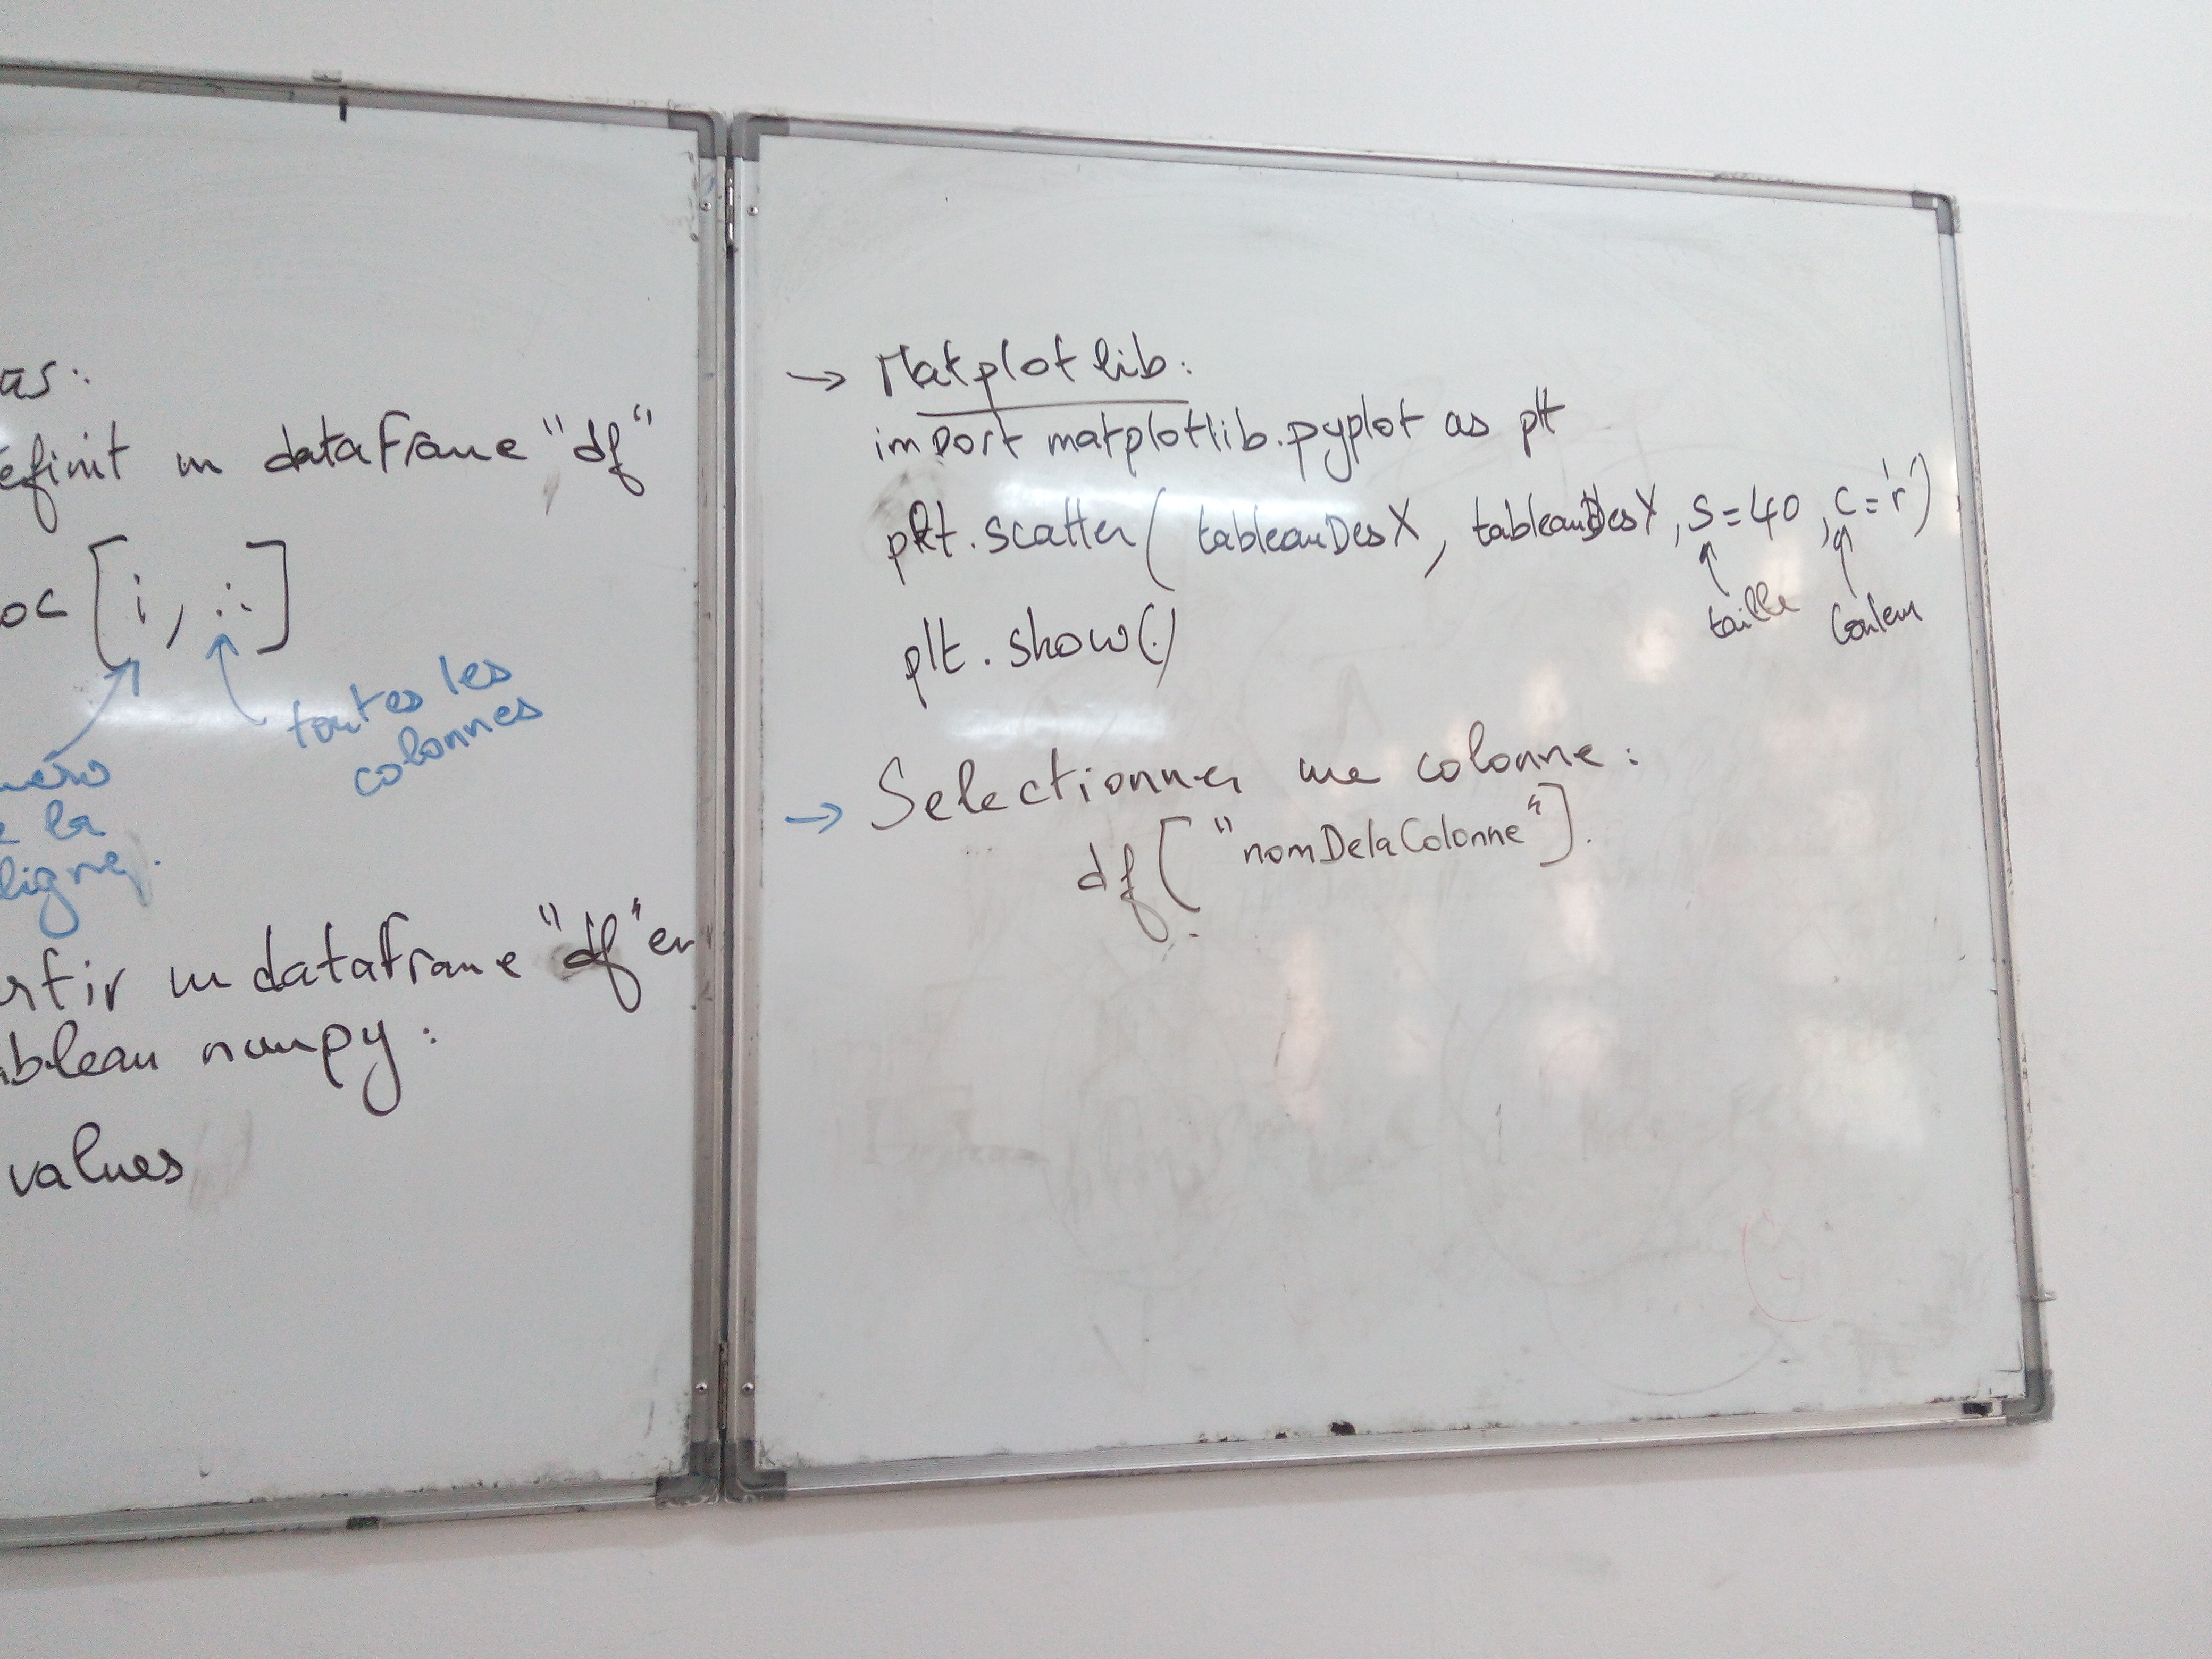 as:
éfinit un dataframe "df"
oc [i, :]
toutes les
colonnes
méro
e la
ligne.
ertir un dataframe "df" en
ableau numpy:
values
→ Matplotlib:
import matplotlib.pyplot as plt
plt.scatter( tableauDesX, tableauDesY, s=40, c='r')
taille couleur
plt.show()
→ Selectionner une colonne :
df["nomDelaColonne"].